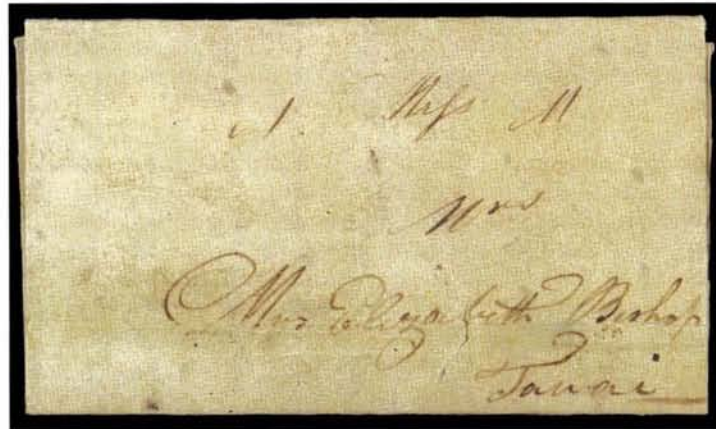 Miss M
Mrs
Mrs Elizabeth Bishop
Tauai